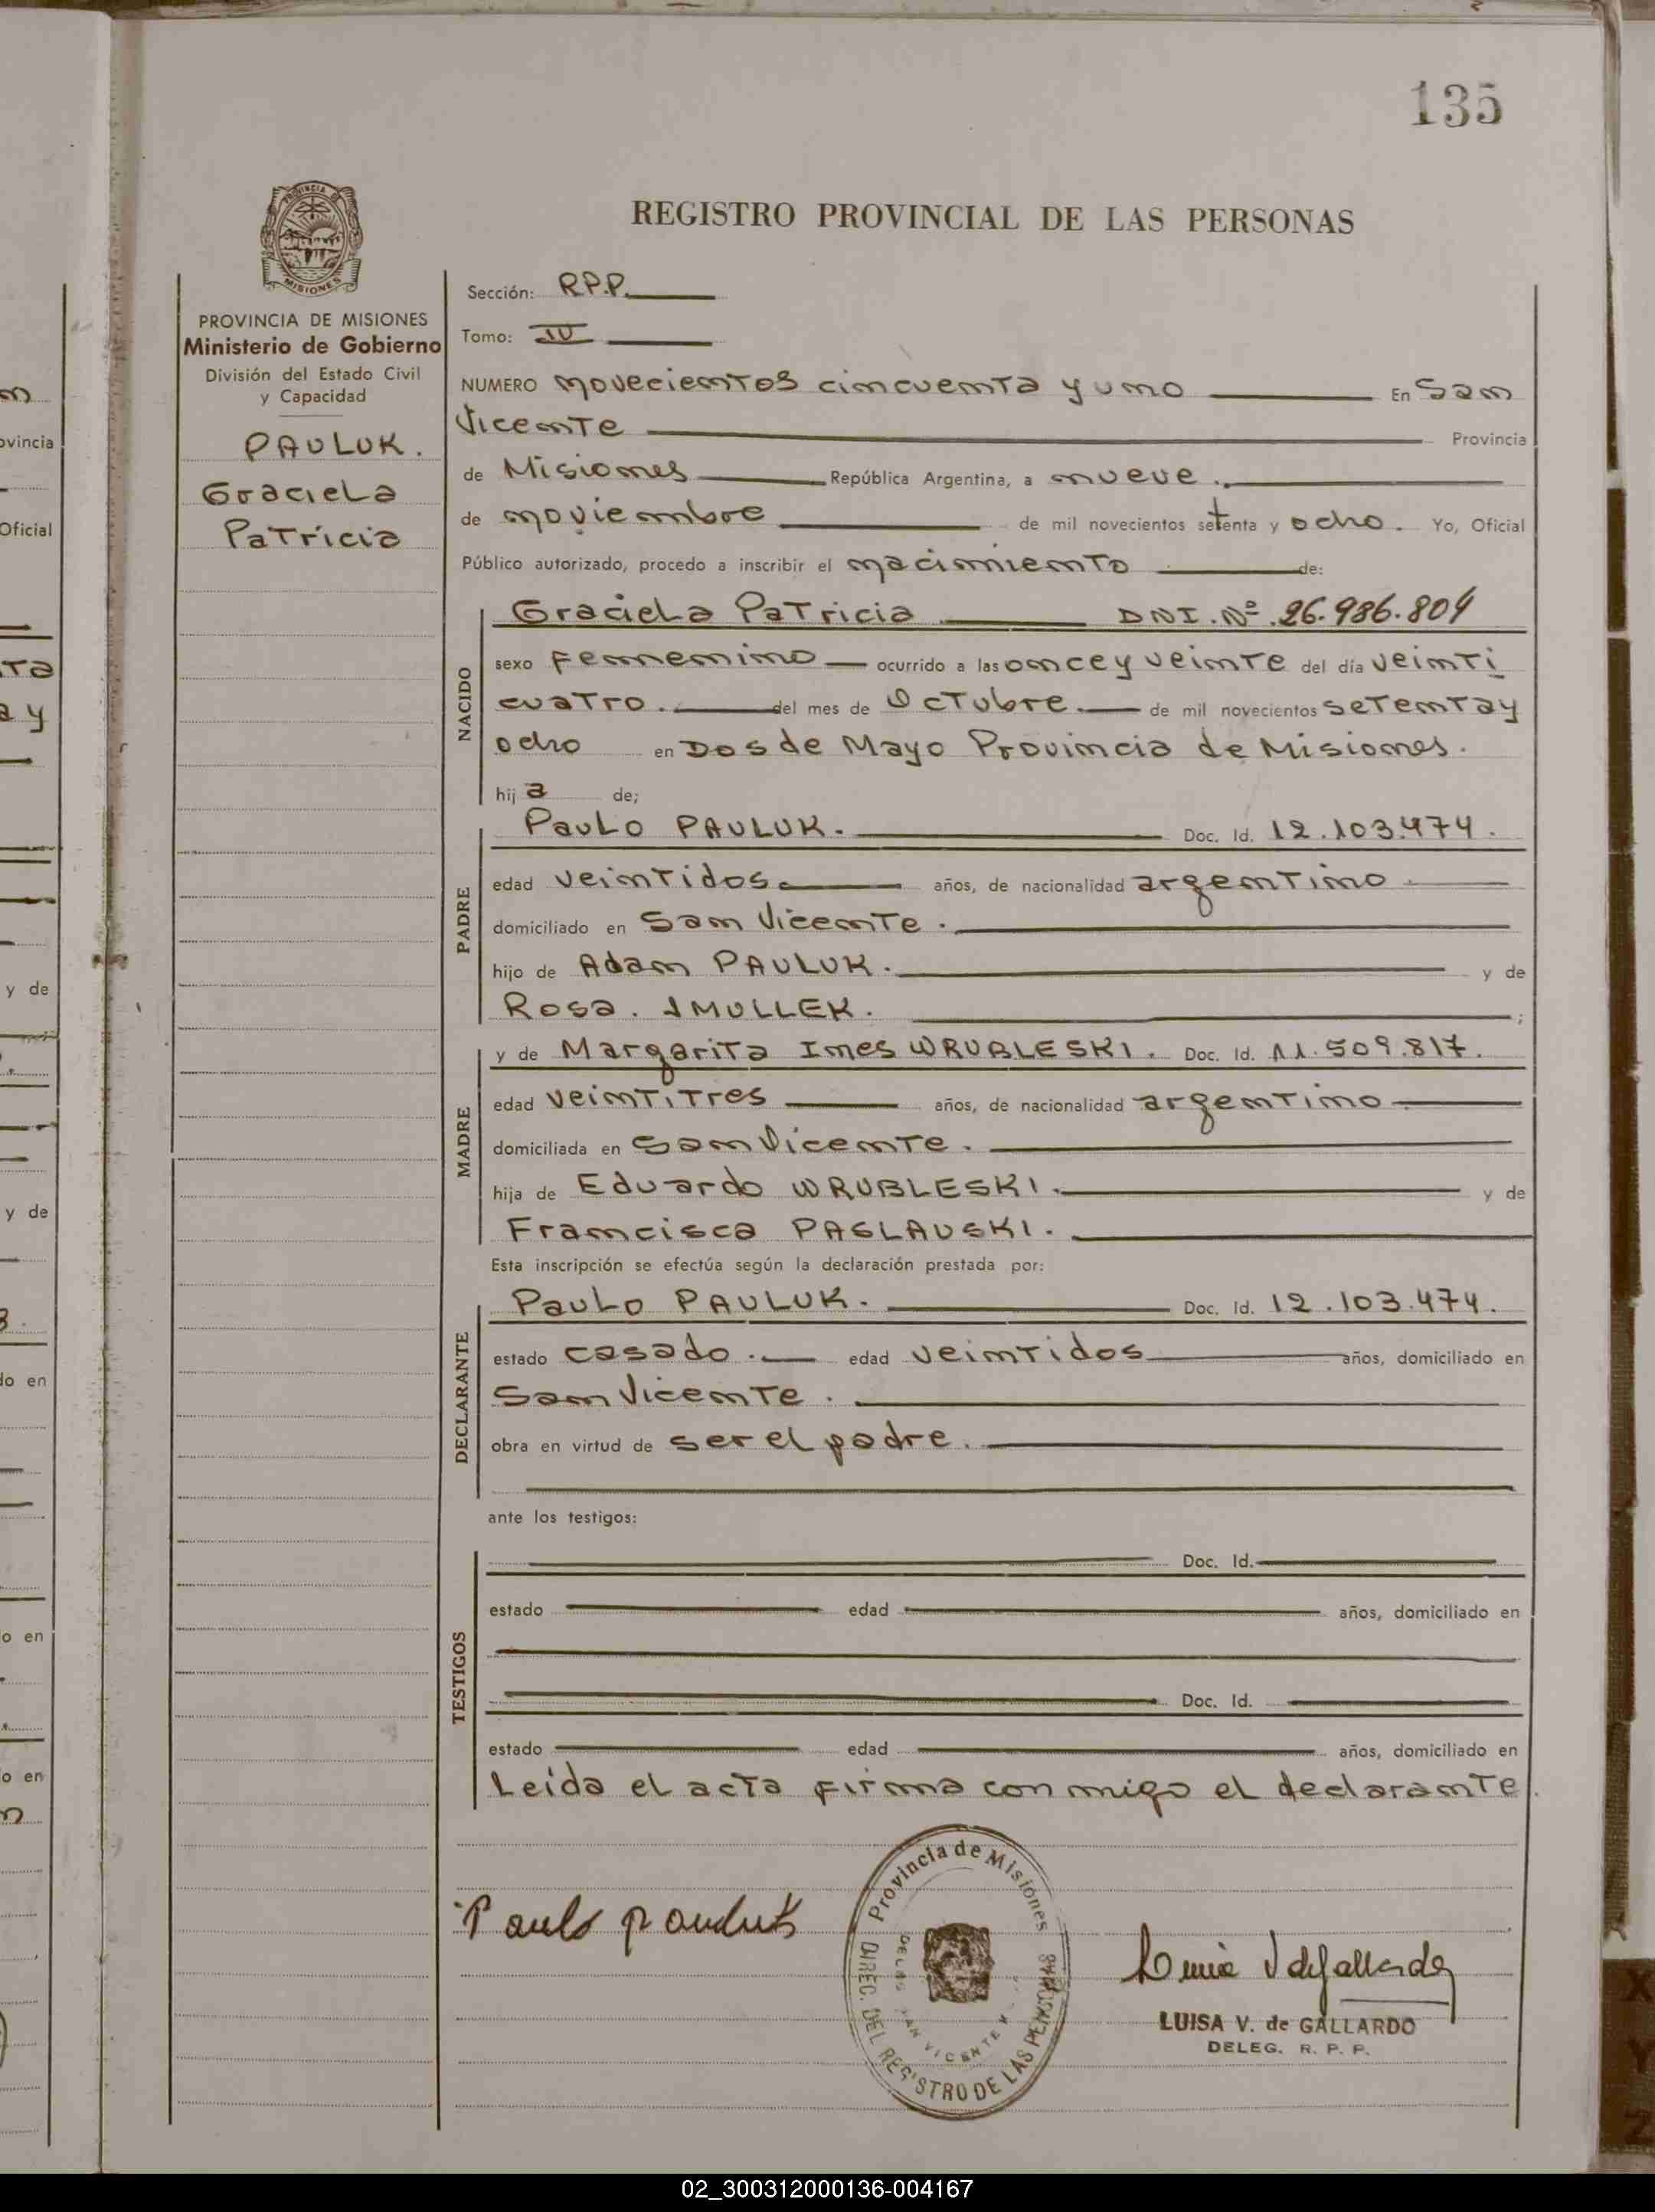 135
REGISTRO PROVINCIAL DE LAS PERSONAS
PROVINCIA DE MISIONES
Ministerio de Gobierno
División del Estado Civil
y Capacidad
PAULUK.
Graciela
Patricia
Sección: R.P.P.
Tomo: IV
NUMERO novecientos cincuenta y uno En San
Vicente Provincia
de Misiones República Argentina, a nueve.
de noviembre de mil novecientos setenta y ocho. Yo, Oficial
Público autorizado, procedo a inscribir el nacimiento de:
NACIDO
Graciela Patricia DNI. Nº 26.986.804
sexo femenino ocurrido a las once y veinte del día veinti
cuatro. del mes de Octubre. de mil novecientos setenta y
ocho en Dos de Mayo Provincia de Misiones.
hija de;
PADRE
Paulo PAULUK. Doc. Id. 12.103.474.
edad veintidos. años, de nacionalidad argentino
domiciliado en San Vicente.
hijo de Adam PAULUK. y de
Rosa. SMULLEK. ;
MADRE
y de Margarita Ines WRUBLESKI. Doc. Id. 11.509.817.
edad veintitres años, de nacionalidad argentino
domiciliada en San Vicente.
hija de Eduardo WRUBLESKI. y de
Francisca PASLAUSKI.
Esta inscripción se efectúa según la declaración prestada por:
DECLARANTE
Paulo PAULUK. Doc. Id. 12.103.474.
estado casado. edad veintidos años, domiciliado en
San Vicente.
obra en virtud de ser el padre.
ante los testigos:
TESTIGOS
Doc. Id.
estado edad años, domiciliado en
Doc. Id.
estado edad años, domiciliado en
Leída el acta firma conmigo el declarante
Provincia de Misiones
DIREC. DEL REGISTRO DE LAS PERSONAS
SAN VICENTE
LUISA V. de GALLARDO
DELEG. R. P. P.
02_300312000136-004167